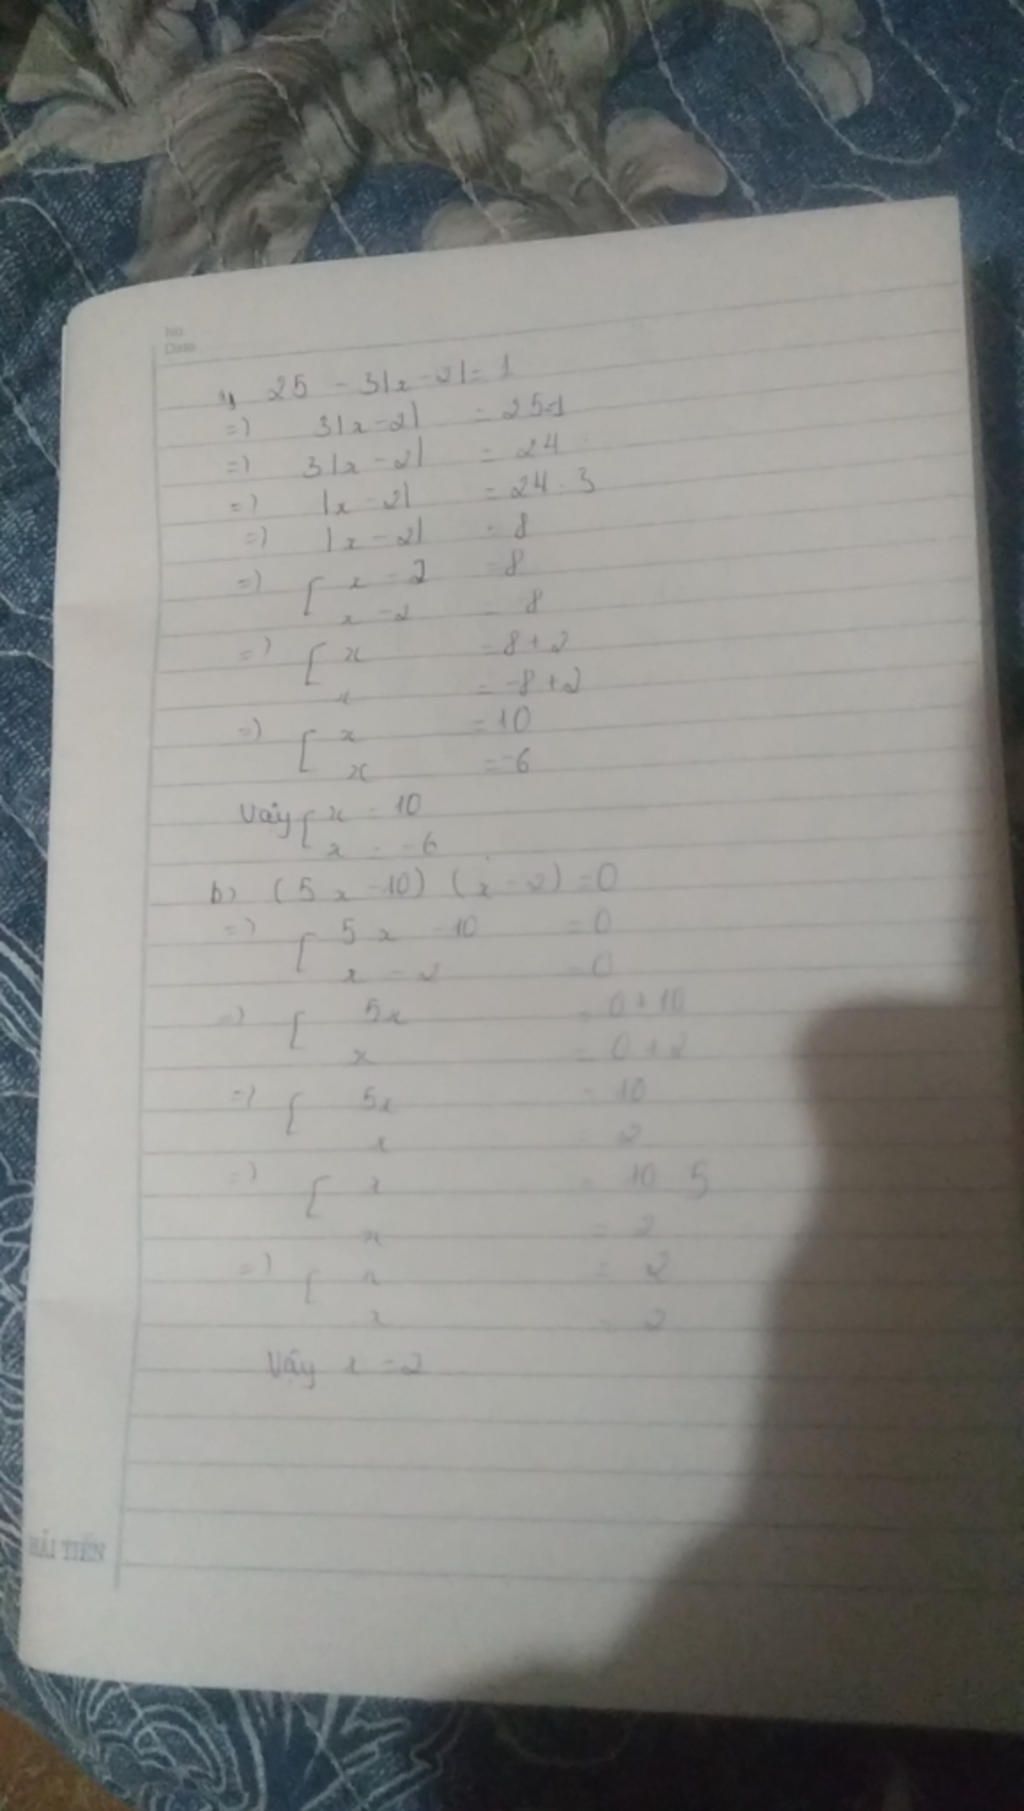 No.
Date
a) 25 - 3|x - 2| = 1
=) 3|x - 2| = 25-1
=) 3|x - 2| = 24
=) |x - 2| = 24 : 3
=) |x - 2| = 8
=) [ x - 2 = 8
x - 2 = 8
=) [ x = 8 + 2
x = -8 + 2
=) [ x = 10
x = -6
Vậy [ x = 10
x = -6
b) (5x - 10) (x - 2) = 0
=) [ 5x - 10 = 0
x - 2 = 0
=) [ 5x = 0 + 10
x = 0 + 2
=) [ 5x = 10
x = 2
=) [ x = 10 5
x = 2
=) [ x = 2
x = 2
Vậy x = 2
HẢI TIẾN